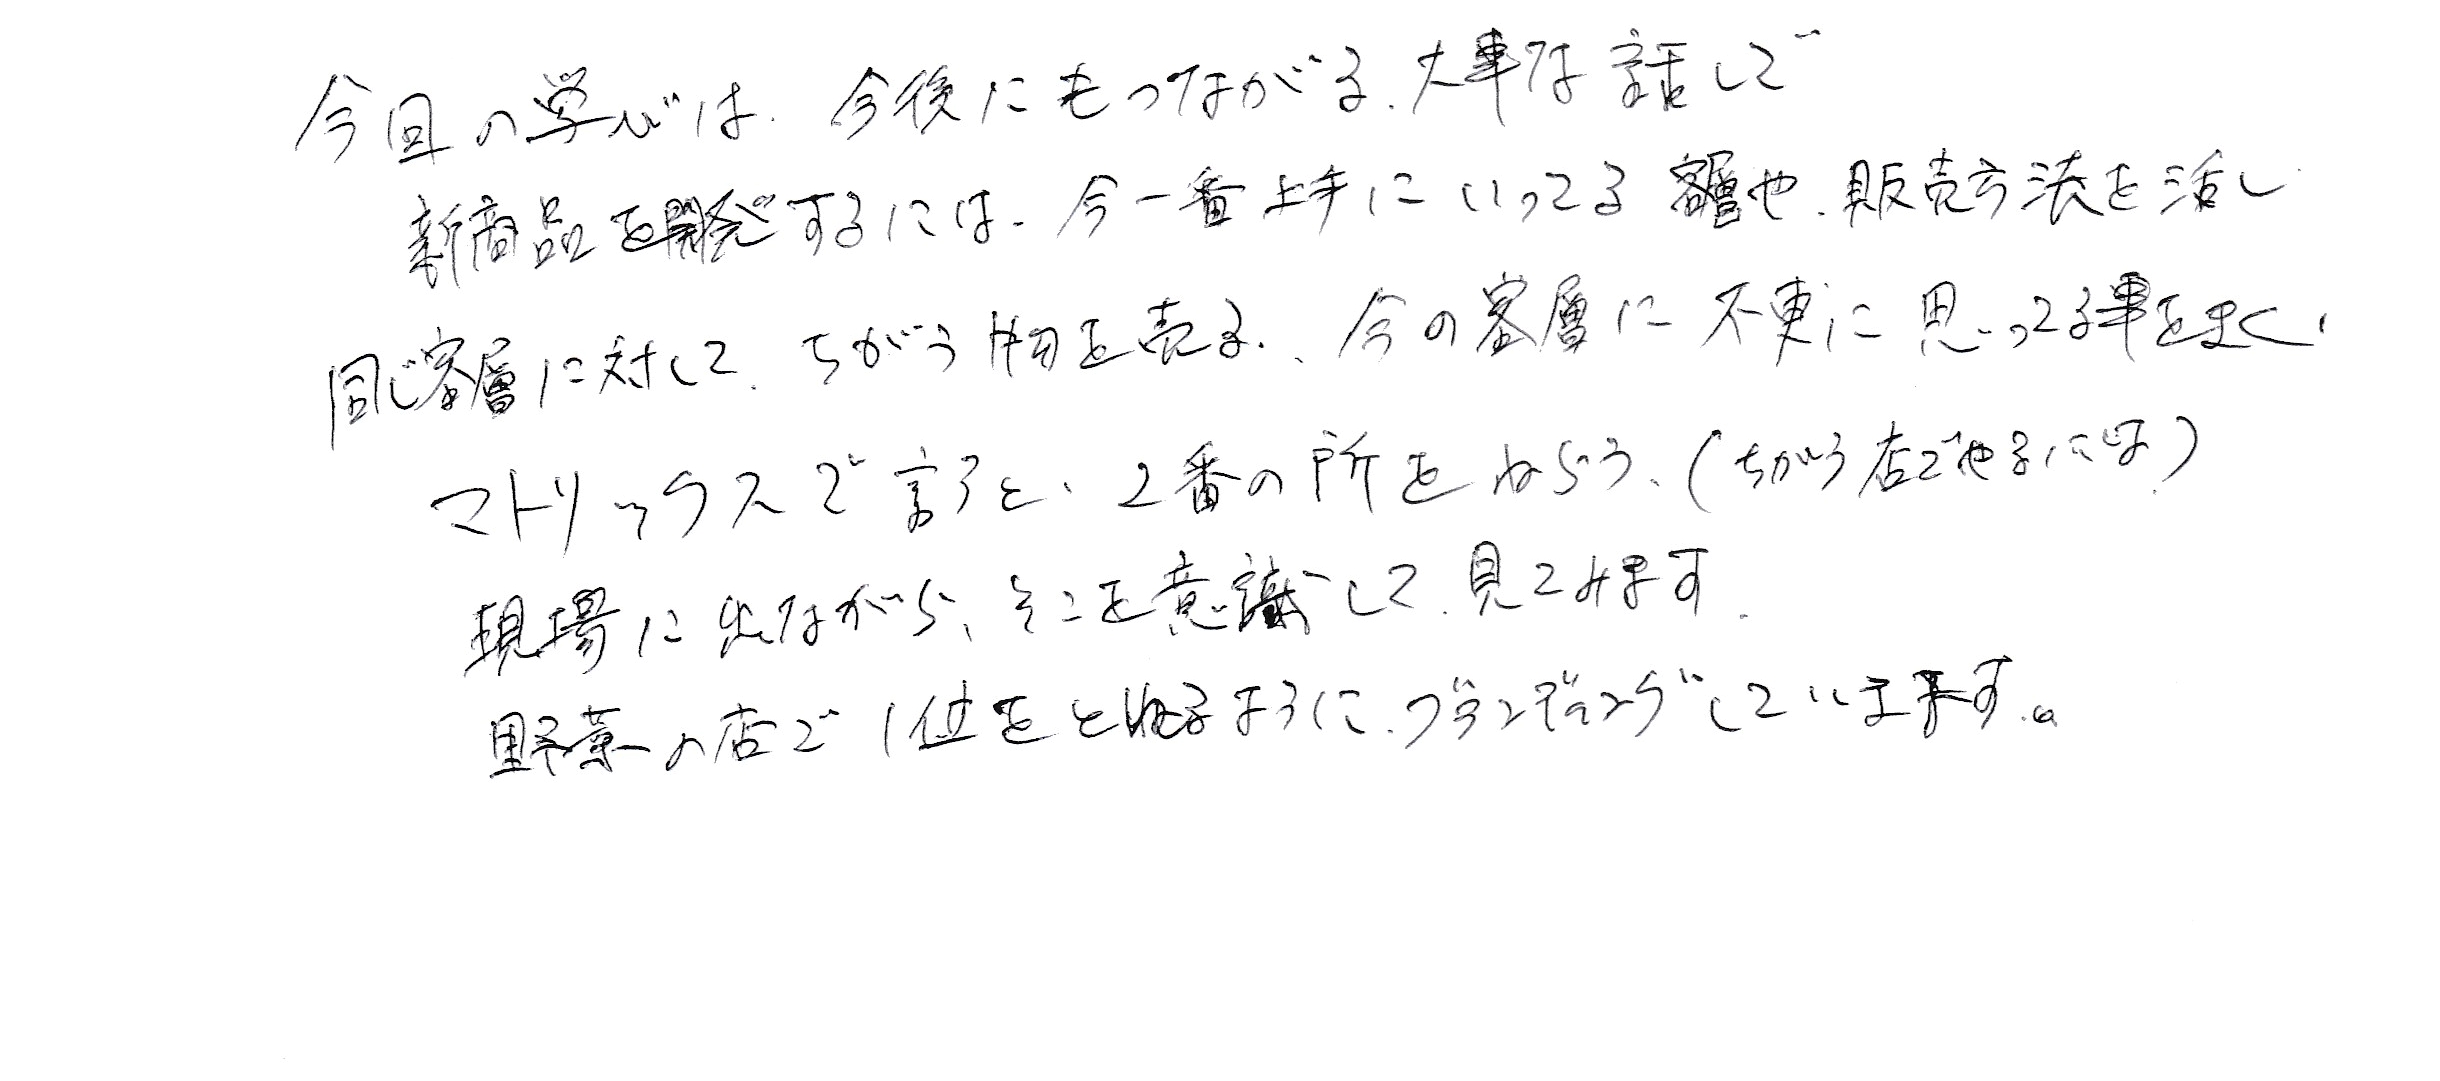 今回の学びは、今後にもつながる、大事な話しで
新商品を開発するには、今一番上手にいってる客層や、販売方法を活し
同じ客層に対して、ちがう物を売る、今の客層に不便に思ってる事をきく、
マトリックスで言うと、2番の所をねらう、(ちがう店でやるには)
現場に出ながら、そこを意識して、見てみます、
野菜の店で1位をとれるように、ブランディングしていきます。